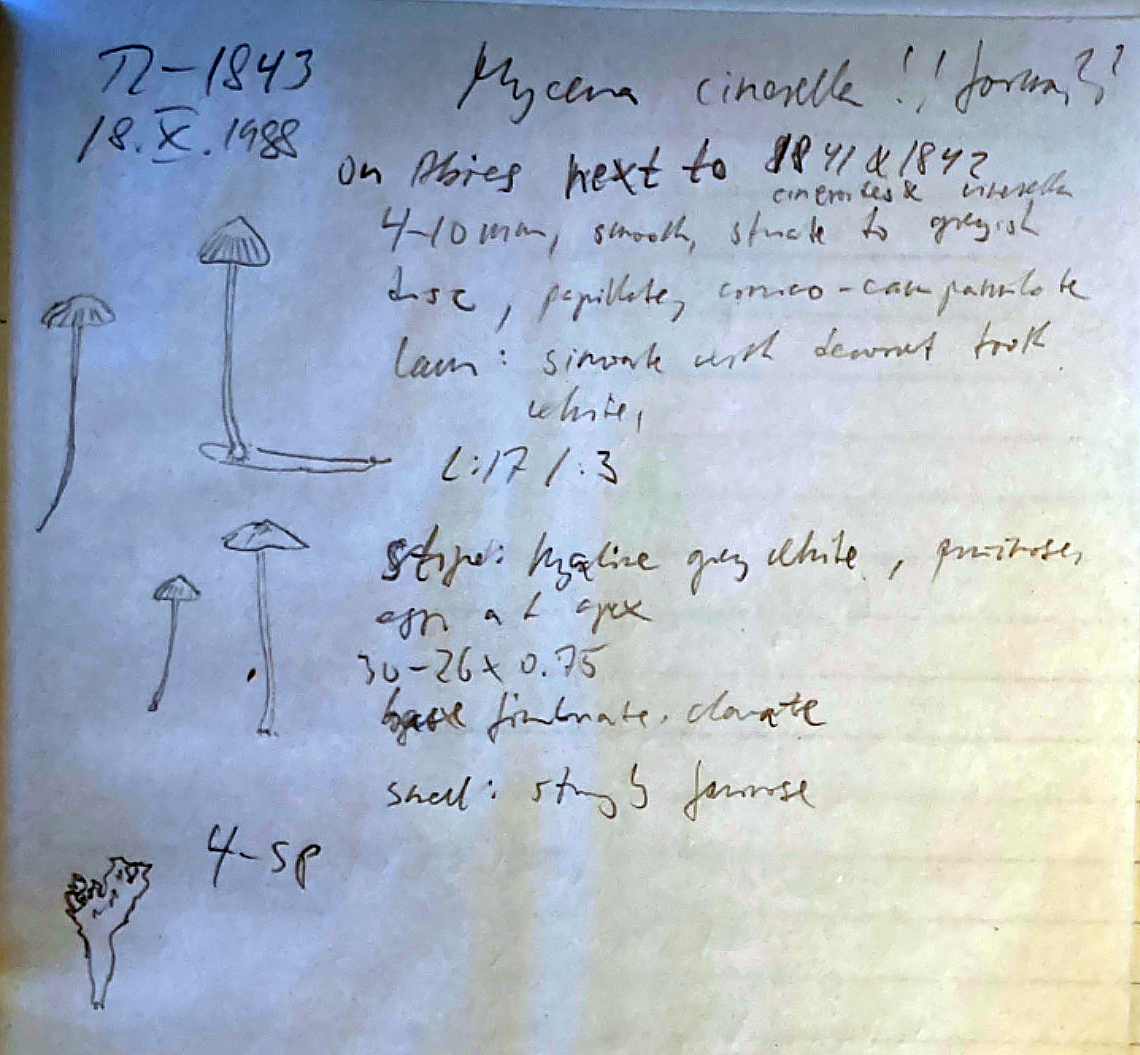 π-1843
18.X.1988
Mycena cinerella !! forma??
on Abies next to 1841 & 1842
cineroides & vitrella
4-10 mm, smooth, striate to greyish
disc, papillate, conico-campanulate
lam: sinuate with decurrent tooth
white,
L:17 l:3
stipe: hyaline grey white, pruinose,
esp. at apex
30-26 x 0.75
base fimbriate, clavate
smell: strongly farinose
4-sp